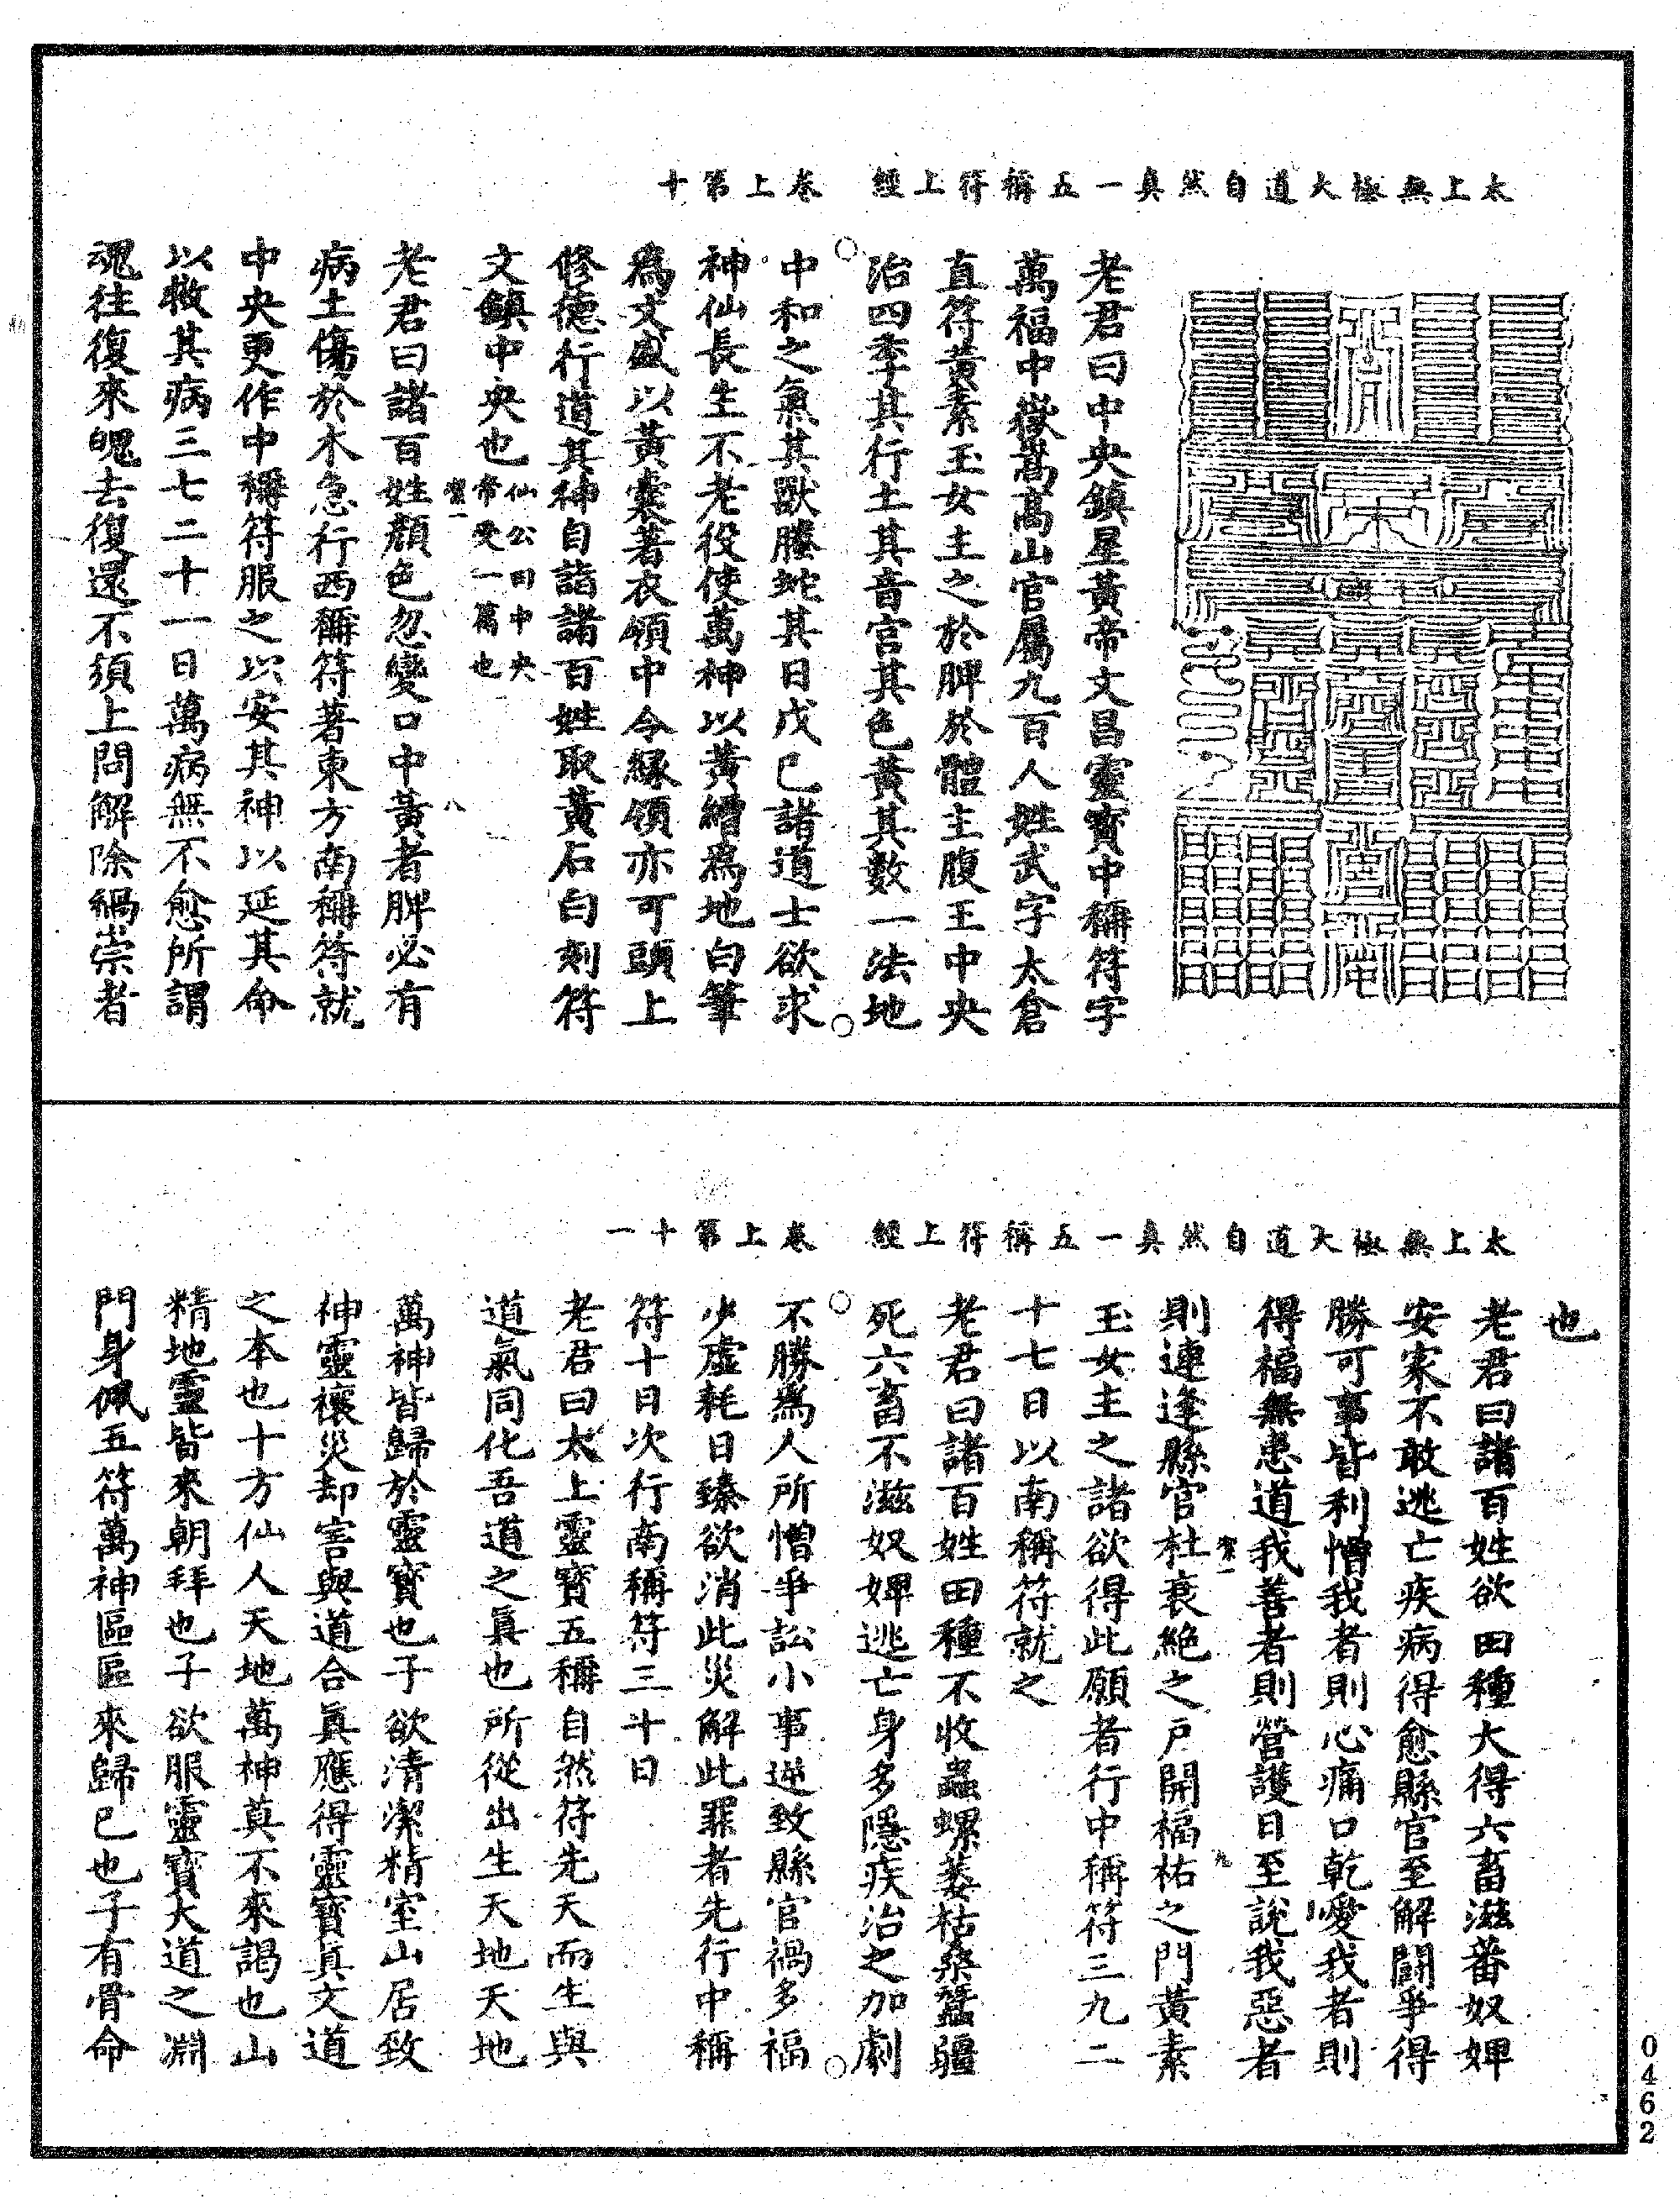 太上無極大道自然真一五稱符上經　卷上第十
老君曰中央鎮星黃帝文昌靈寶中稱符字
萬福中嶽嵩高山官屬九百人姓武字太倉
直符黃素玉女主之於脾於體主腹王中央
治四季其行土其音宮其色黃其數一法地
中和之氣其獸螣蛇其日戊己諸道士欲求
神仙長生不老役使萬神以黃繒爲地白筆
爲文盛以黃囊著衣領中令緣領亦可頭上
修德行道其神自詣諸百姓取黃石白刻符
文鎮中央也仙公曰中央
常受一篇也
老君曰諸百姓顏色忽變口中黃者脾必有
病土傷於木急行西稱符著東方南稱符就
中央更作中稱符服之以安其神以延其命
以救其病三七二十一日萬病無不愈所謂
魂往復來魄去復還不須上問解除禍祟者
八
太上無極大道自然真一五稱符上經　卷上第十一
也
老君曰諸百姓欲田種大得六畜滋蕃奴婢
安家不敢逃亡疾病得愈縣官至解鬪爭得
勝可事皆利憎我者則心痛口乾愛我者則
得福無患道我善者則營護日至說我惡者
則連逢縣官杜衰絕之戶開福祐之門黃素
玉女主之諸欲得此願者行中稱符三九二
十七日以南稱符就之
老君曰諸百姓田種不收蟲螺萎枯桑蠶疆
死六畜不滋奴婢逃亡身多隱疾治之加劇
不勝爲人所憎爭訟小事逆致縣官禍多福
少虛耗日臻欲消此災解此罪者先行中稱
符十日次行南稱符三十日
老君曰太上靈寶五稱自然符先天而生與
道氣同化吾道之眞也所從出生天地天地
萬神皆歸於靈寶也子欲清潔精室山居致
神靈禳災却害與道合眞應得靈寶真文道
之本也十方仙人天地萬神莫不來謁也山
精地靈皆來朝拜也子欲服靈寶大道之淵
門身佩五符萬神區區來歸己也子有骨命
九
0462